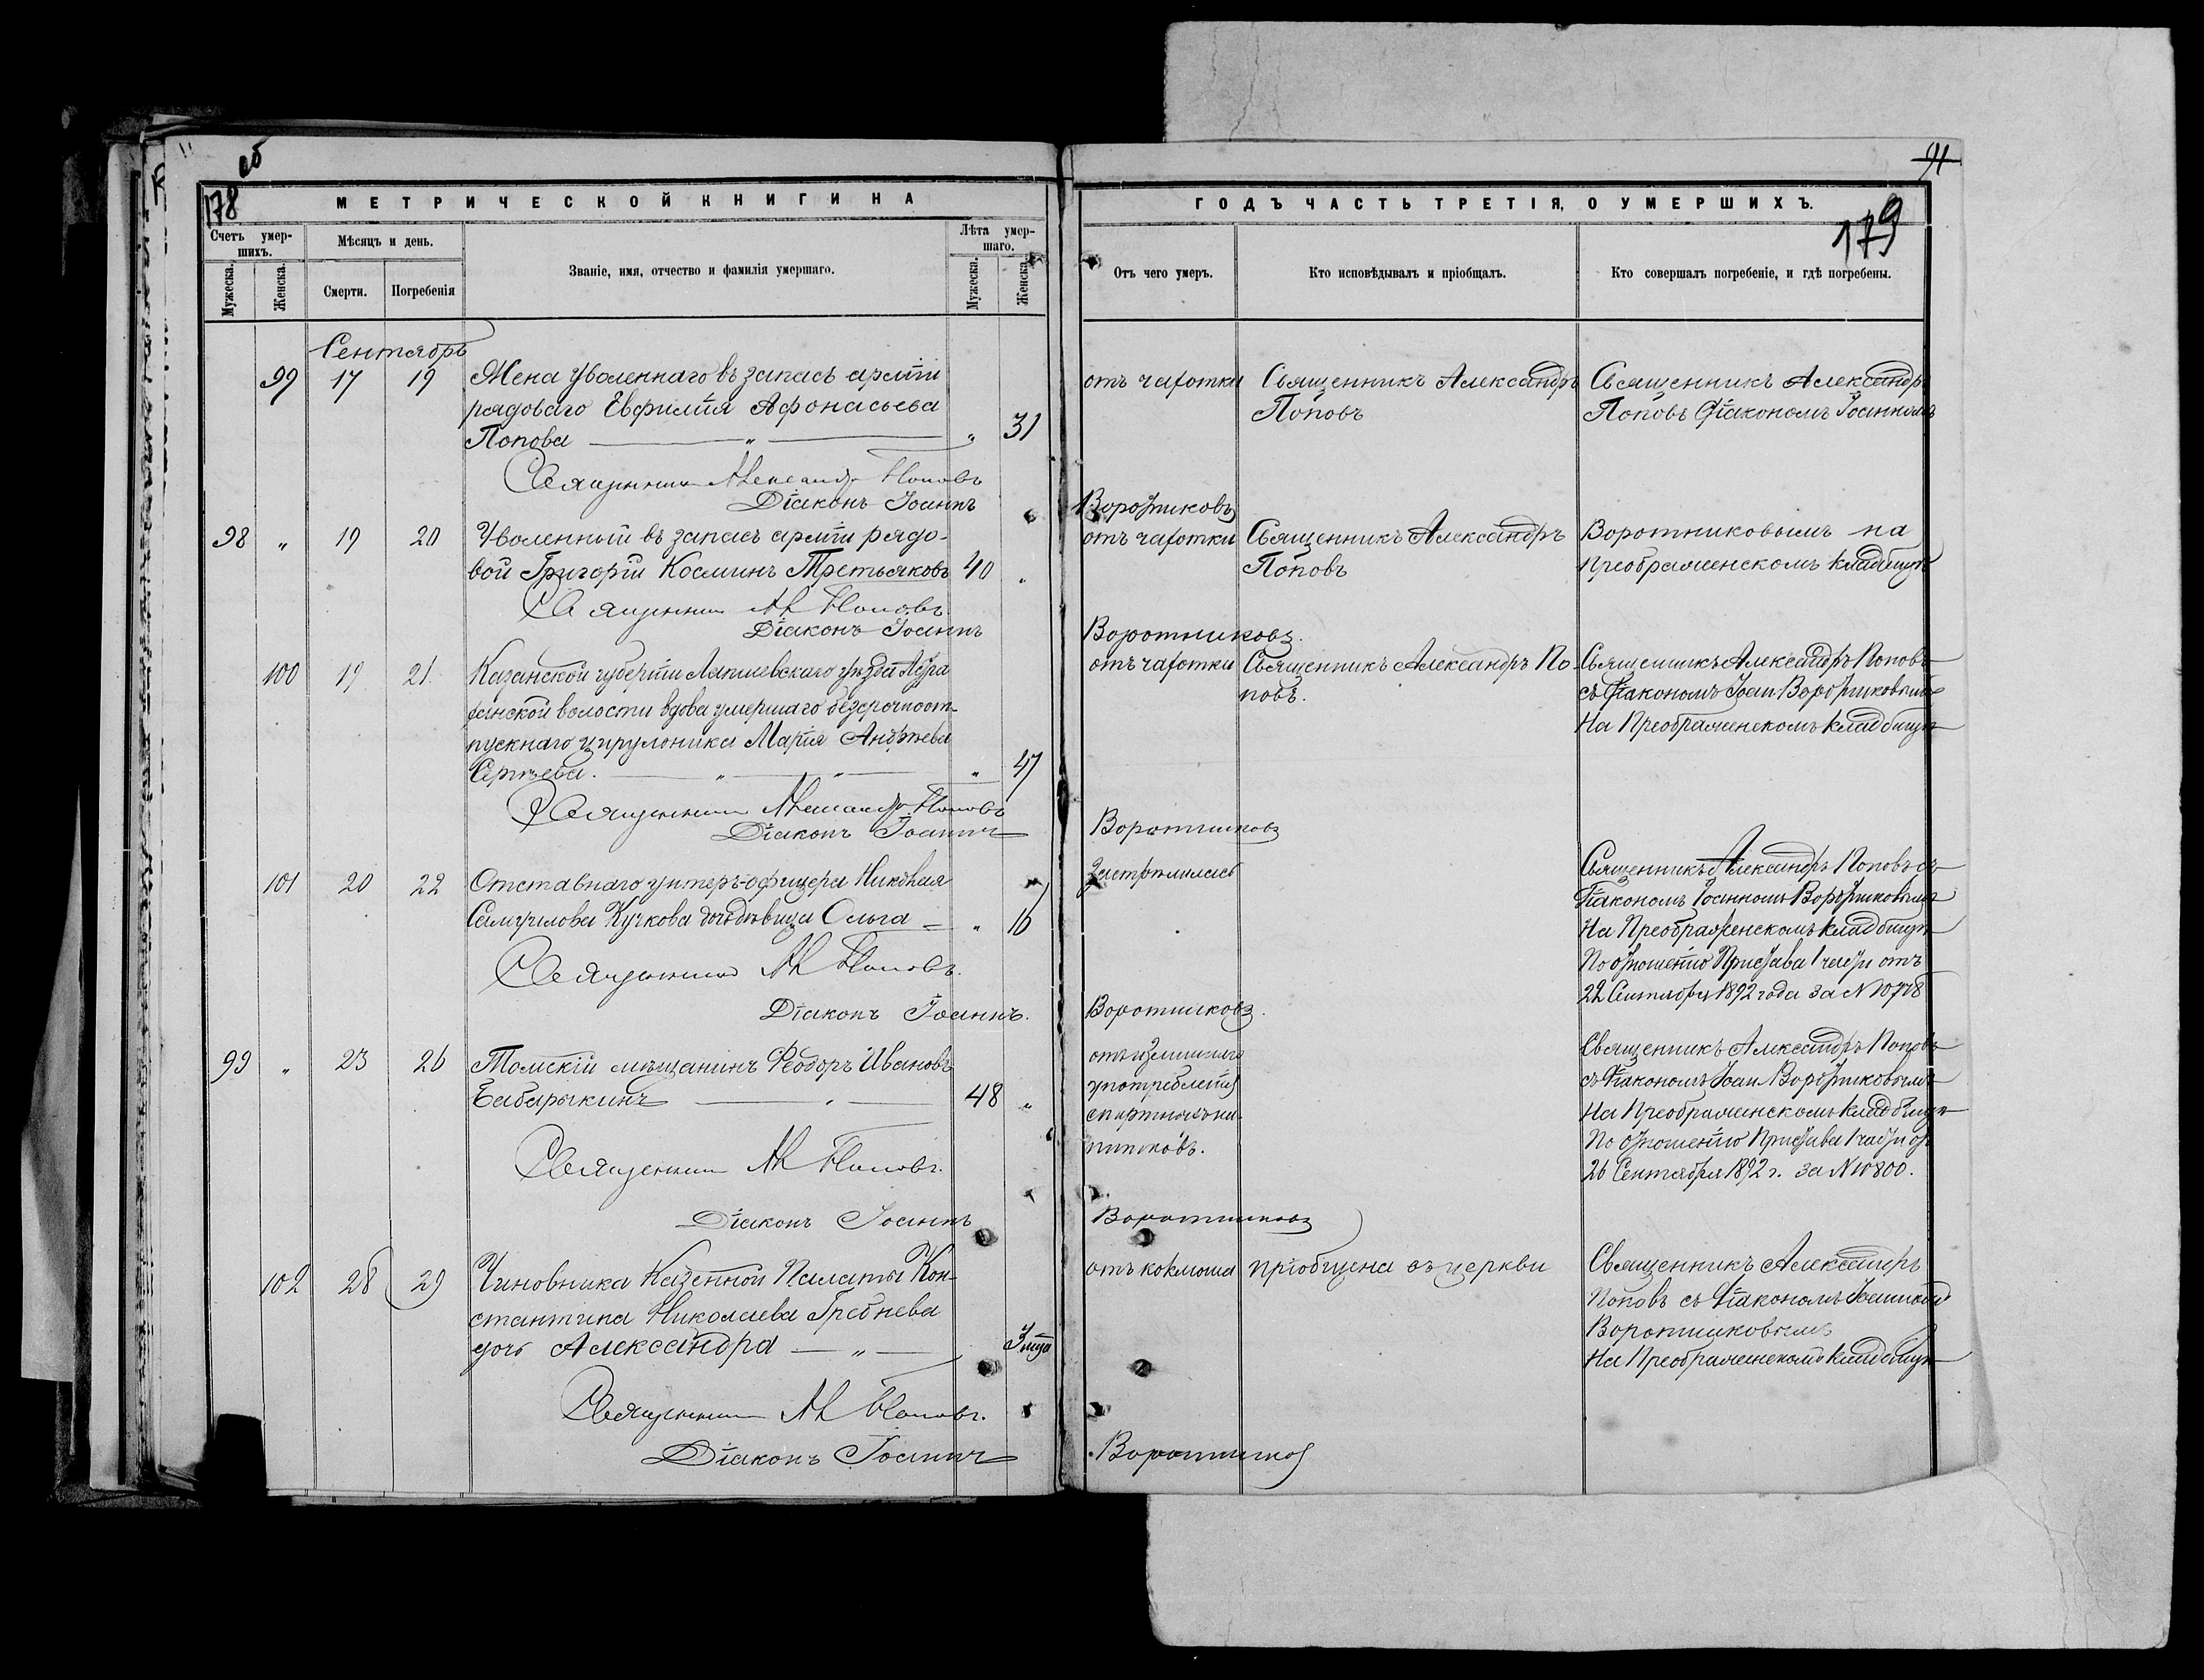 178 об
МЕТРИЧЕСКОЙ КНИГИ НА
Счетъ умер-
шихъ.
Мѣсяцъ и день.
Званіе, имя, отчество и фамилія умершаго.
Лѣта умер-
шаго.
Мужеска.
Женска.
Смерти.
Погребенія
Мужеска.
Женска.
Сентябрь
99 17 19 Жена уволеннаго въ запасъ арміи
рядоваго Евфимія Афонасьева
Попова — „ — „ 31
Священникъ Александръ Поповъ
Діаконъ Іоаннъ
98 „ 19 20 Уволенный въ запасъ арміи рядо-
вой Григорій Косминъ Третьяковъ 40 „
Священникъ Ал Поповъ.
Діаконъ Іоаннъ
100 19 21 Казанской губерніи Лаишевскаго уѣзда
волости вдова умершаго безсрочноот-
пускнаго цирульника Марія Андреева
Сергѣева. — „ — „ — „ 47
Священникъ Александръ Поповъ
Діаконъ Іоаннъ
101 20 22 Отставнаго унтеръ-офицера Николая
Самуилова Кучкова дочь дѣвица Ольга — „ 16
Священникъ Ал Поповъ.
Діаконъ Іоаннъ.
99 „ 23 26 Томскій мѣщанинъ Феодоръ Ивановъ
Бабарыкинъ — „ — 48 „
Священникъ Ал Поповъ.
Діаконъ Іоаннъ
102 28 29 Чиновника Казенной Палаты Кон-
стантина Николаева Гребнева
дочь Александра — „ — 3 мца
Священникъ Ал Поповъ.
Діаконъ Іоаннъ
91
179
ГОДЪ ЧАСТЬ ТРЕТІЯ, О УМЕРШИХЪ.
Отъ чего умеръ.
Кто исповѣдывалъ и пріобщалъ.
Кто совершалъ погребеніе, и гдѣ погребены.
отъ чахотки Священникъ Александръ Священникъ Александръ
Поповъ Поповъ Діакономъ Іоанномъ
Воротниковъ
отъ чахотки Священникъ Александръ Воротниковымъ на
Поповъ Преображенскомъ кладбищѣ
Воротниковъ.
отъ чахотки Священникъ Александръ По- Священникъ Александръ Поповъ
повъ. съ Діакономъ Іоан Воротниковымъ
На Преображенскомъ кладбищѣ
Воротниковъ
Застрѣлилась Священникъ Александръ Поповъ съ
Діакономъ Іоанномъ Воротниковымъ
На Преображенскомъ кладбищѣ
По отношенію Пристава 1 части отъ
22 Сентября 1892 года за N 10778
Воротниковъ.
отъ излишняго Священникъ Александръ Поповъ
употребленія съ Діакономъ Іоан Воротниковымъ
спиртныхъ на- На Преображенскомъ кладбищѣ
питковъ. По отношенію Пристава 1 части от
26 Сентября 1892 г. за N 10800.
Воротниковъ
отъ коклюша пріобщена въ церкви Священникъ Александръ
Поповъ съ Діакономъ Іоанномъ
Воротниковымъ
На Преображенскомъ кладбищѣ
Воротниковъ